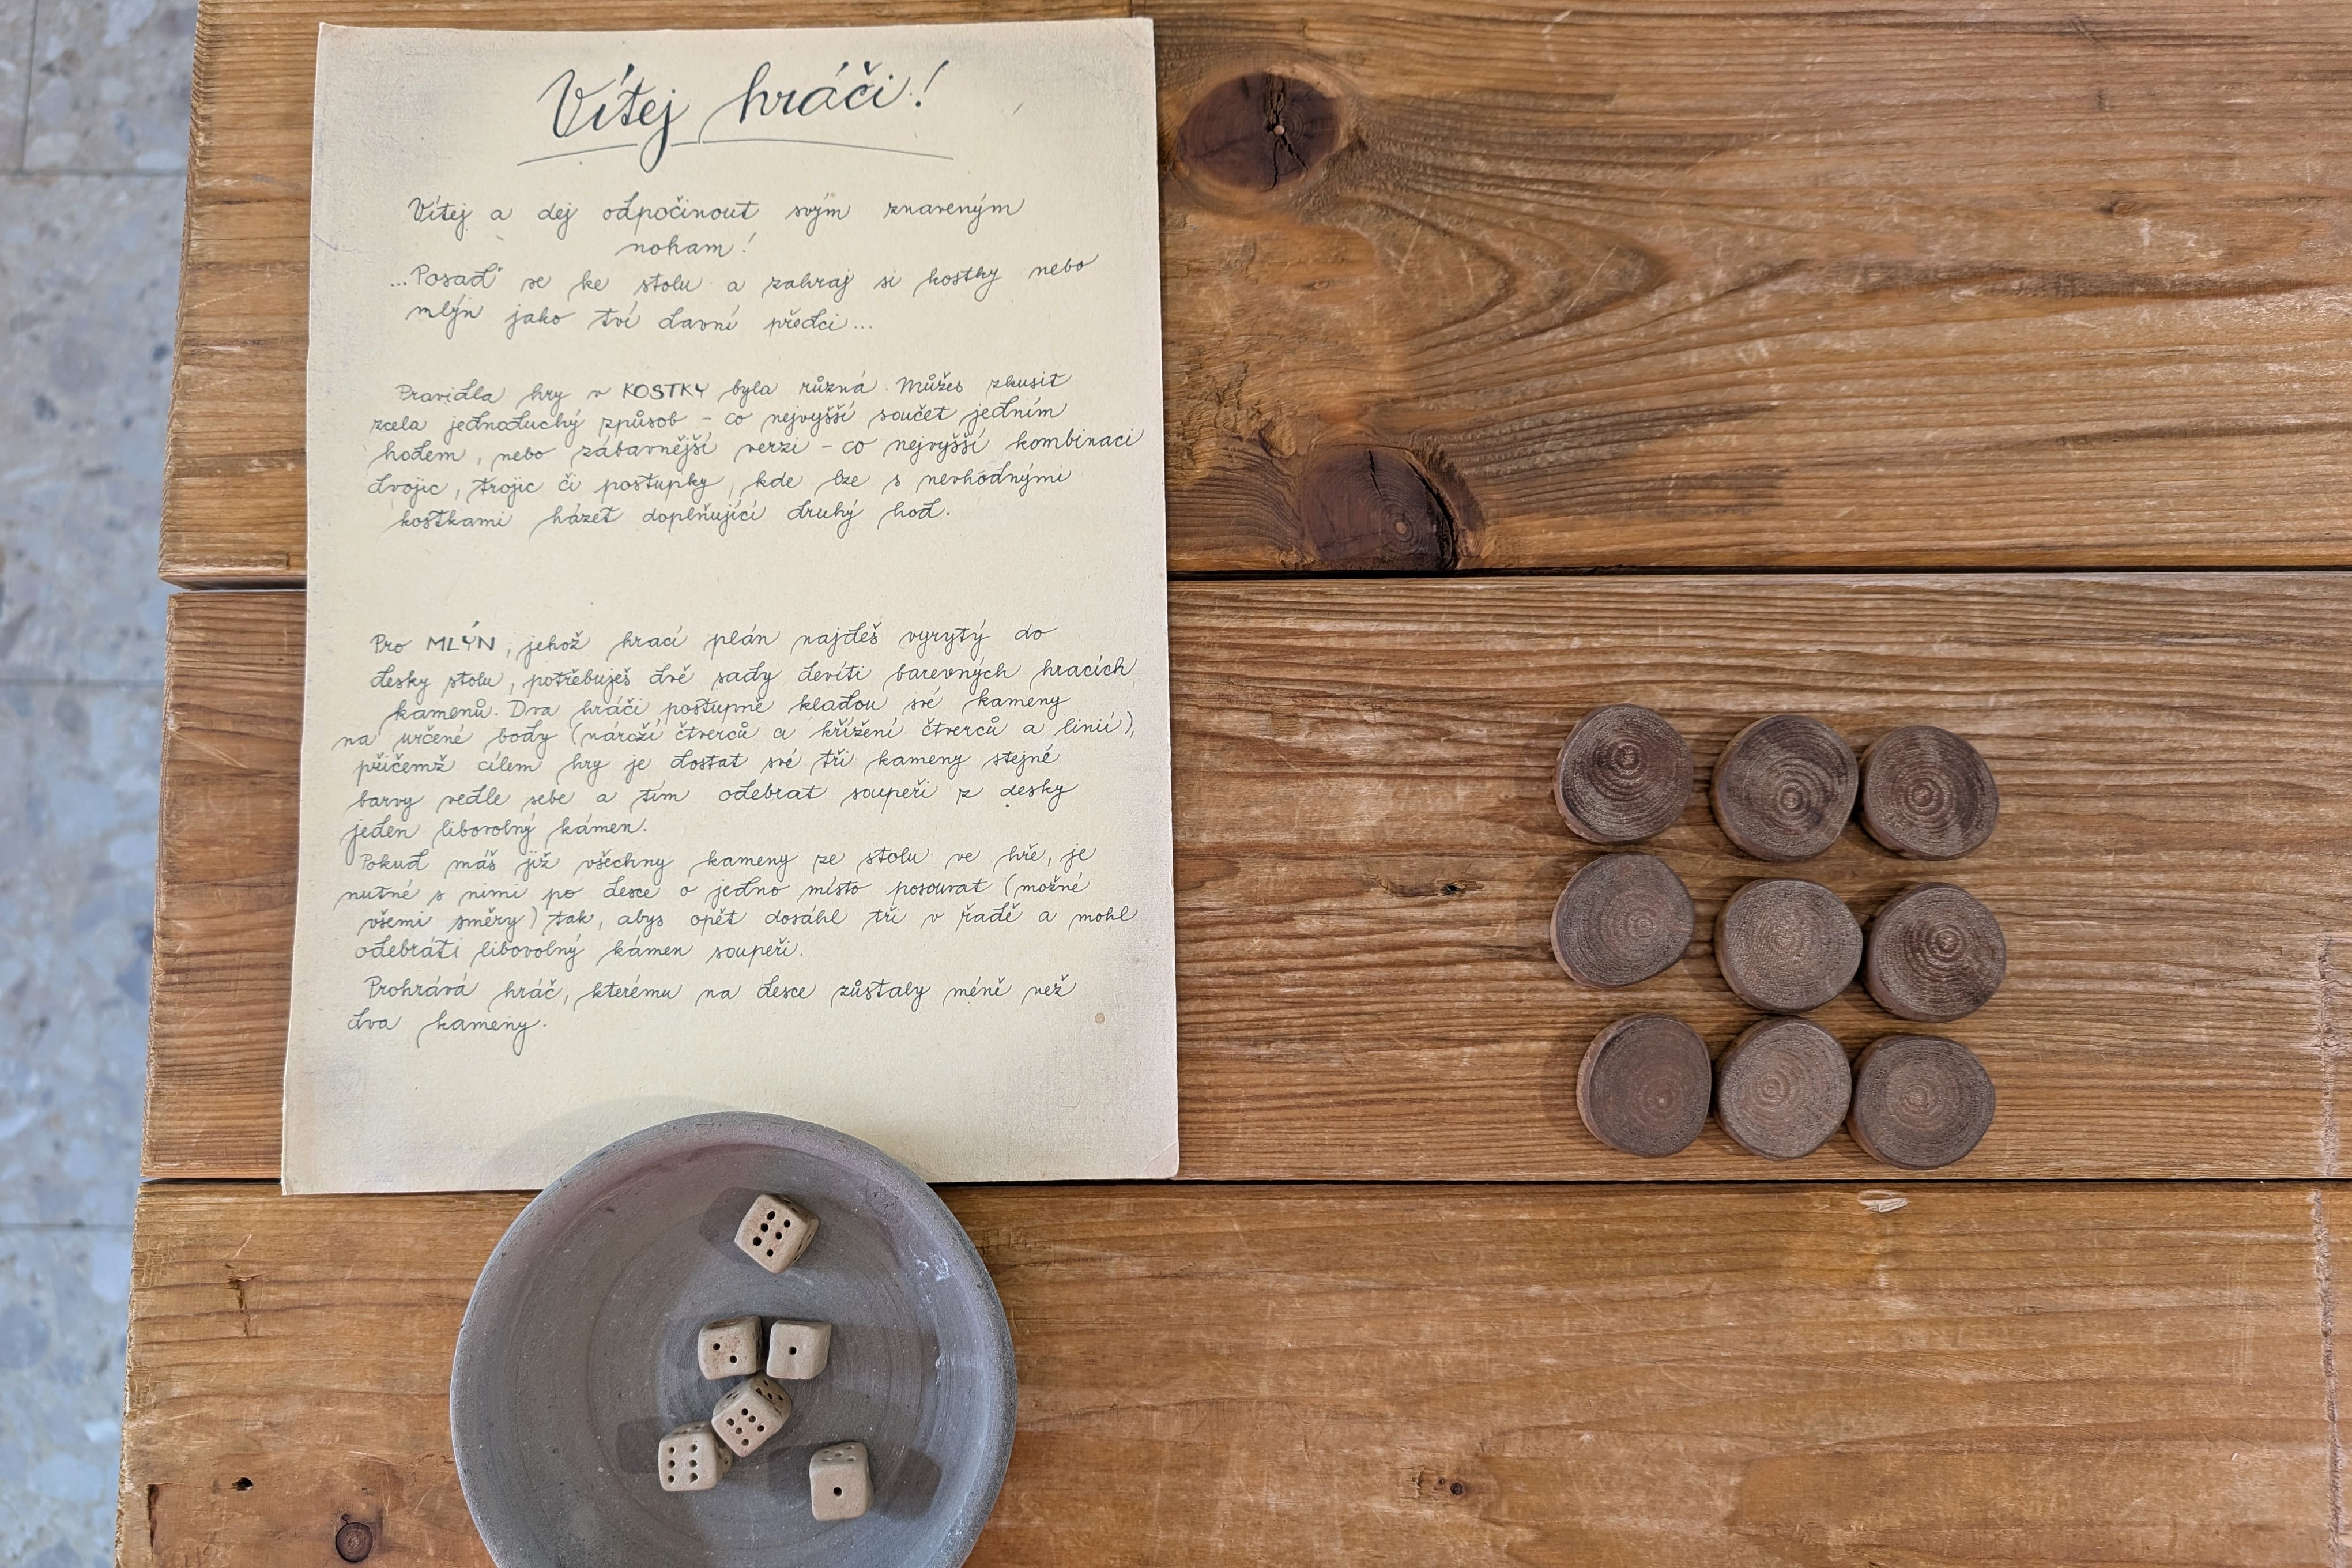 Vítej hráči!
Vítej a dej odpočinout svým znaveným
noham!
...Posaď se ke stolu a zahraj si kostky nebo
mlýn jako tví dávní předci...
Pravidla hry v KOSTKY byla různá. Můžes zkusit
zcela jednoduchý způsob - co nejvyšší součet jedním
hodem, nebo zábavnější verzi - co nejvyšší kombinaci
dvojic, trojic či postupky, kde lze s nevhodnými
kostkami házet doplňující druhý hod.
Pro MLÝN, jehož hrací plán najdeš vyrytý do
desky stolu, potřebuješ dvě sady devíti barevných hracích
kamenů. Dva hráči postupně kladou své kameny
na určené body (nároží čtverců a křížení čtverců a linií),
přičemž cílem hry je dostat své tři kameny stejné
barvy vedle sebe a tím odebrat soupeři z desky
jeden libovolný kámen.
Pokud máš již všechny kameny ze stolu ve hře, je
nutné s nimi po desce o jedno místo posouvat (možné
všemi směry) tak, abys opět dosáhl tři v řadě a mohl
odebráti libovolný kámen soupeři.
Prohrává hráč, kterému na desce zůstaly méně než
dva kameny.